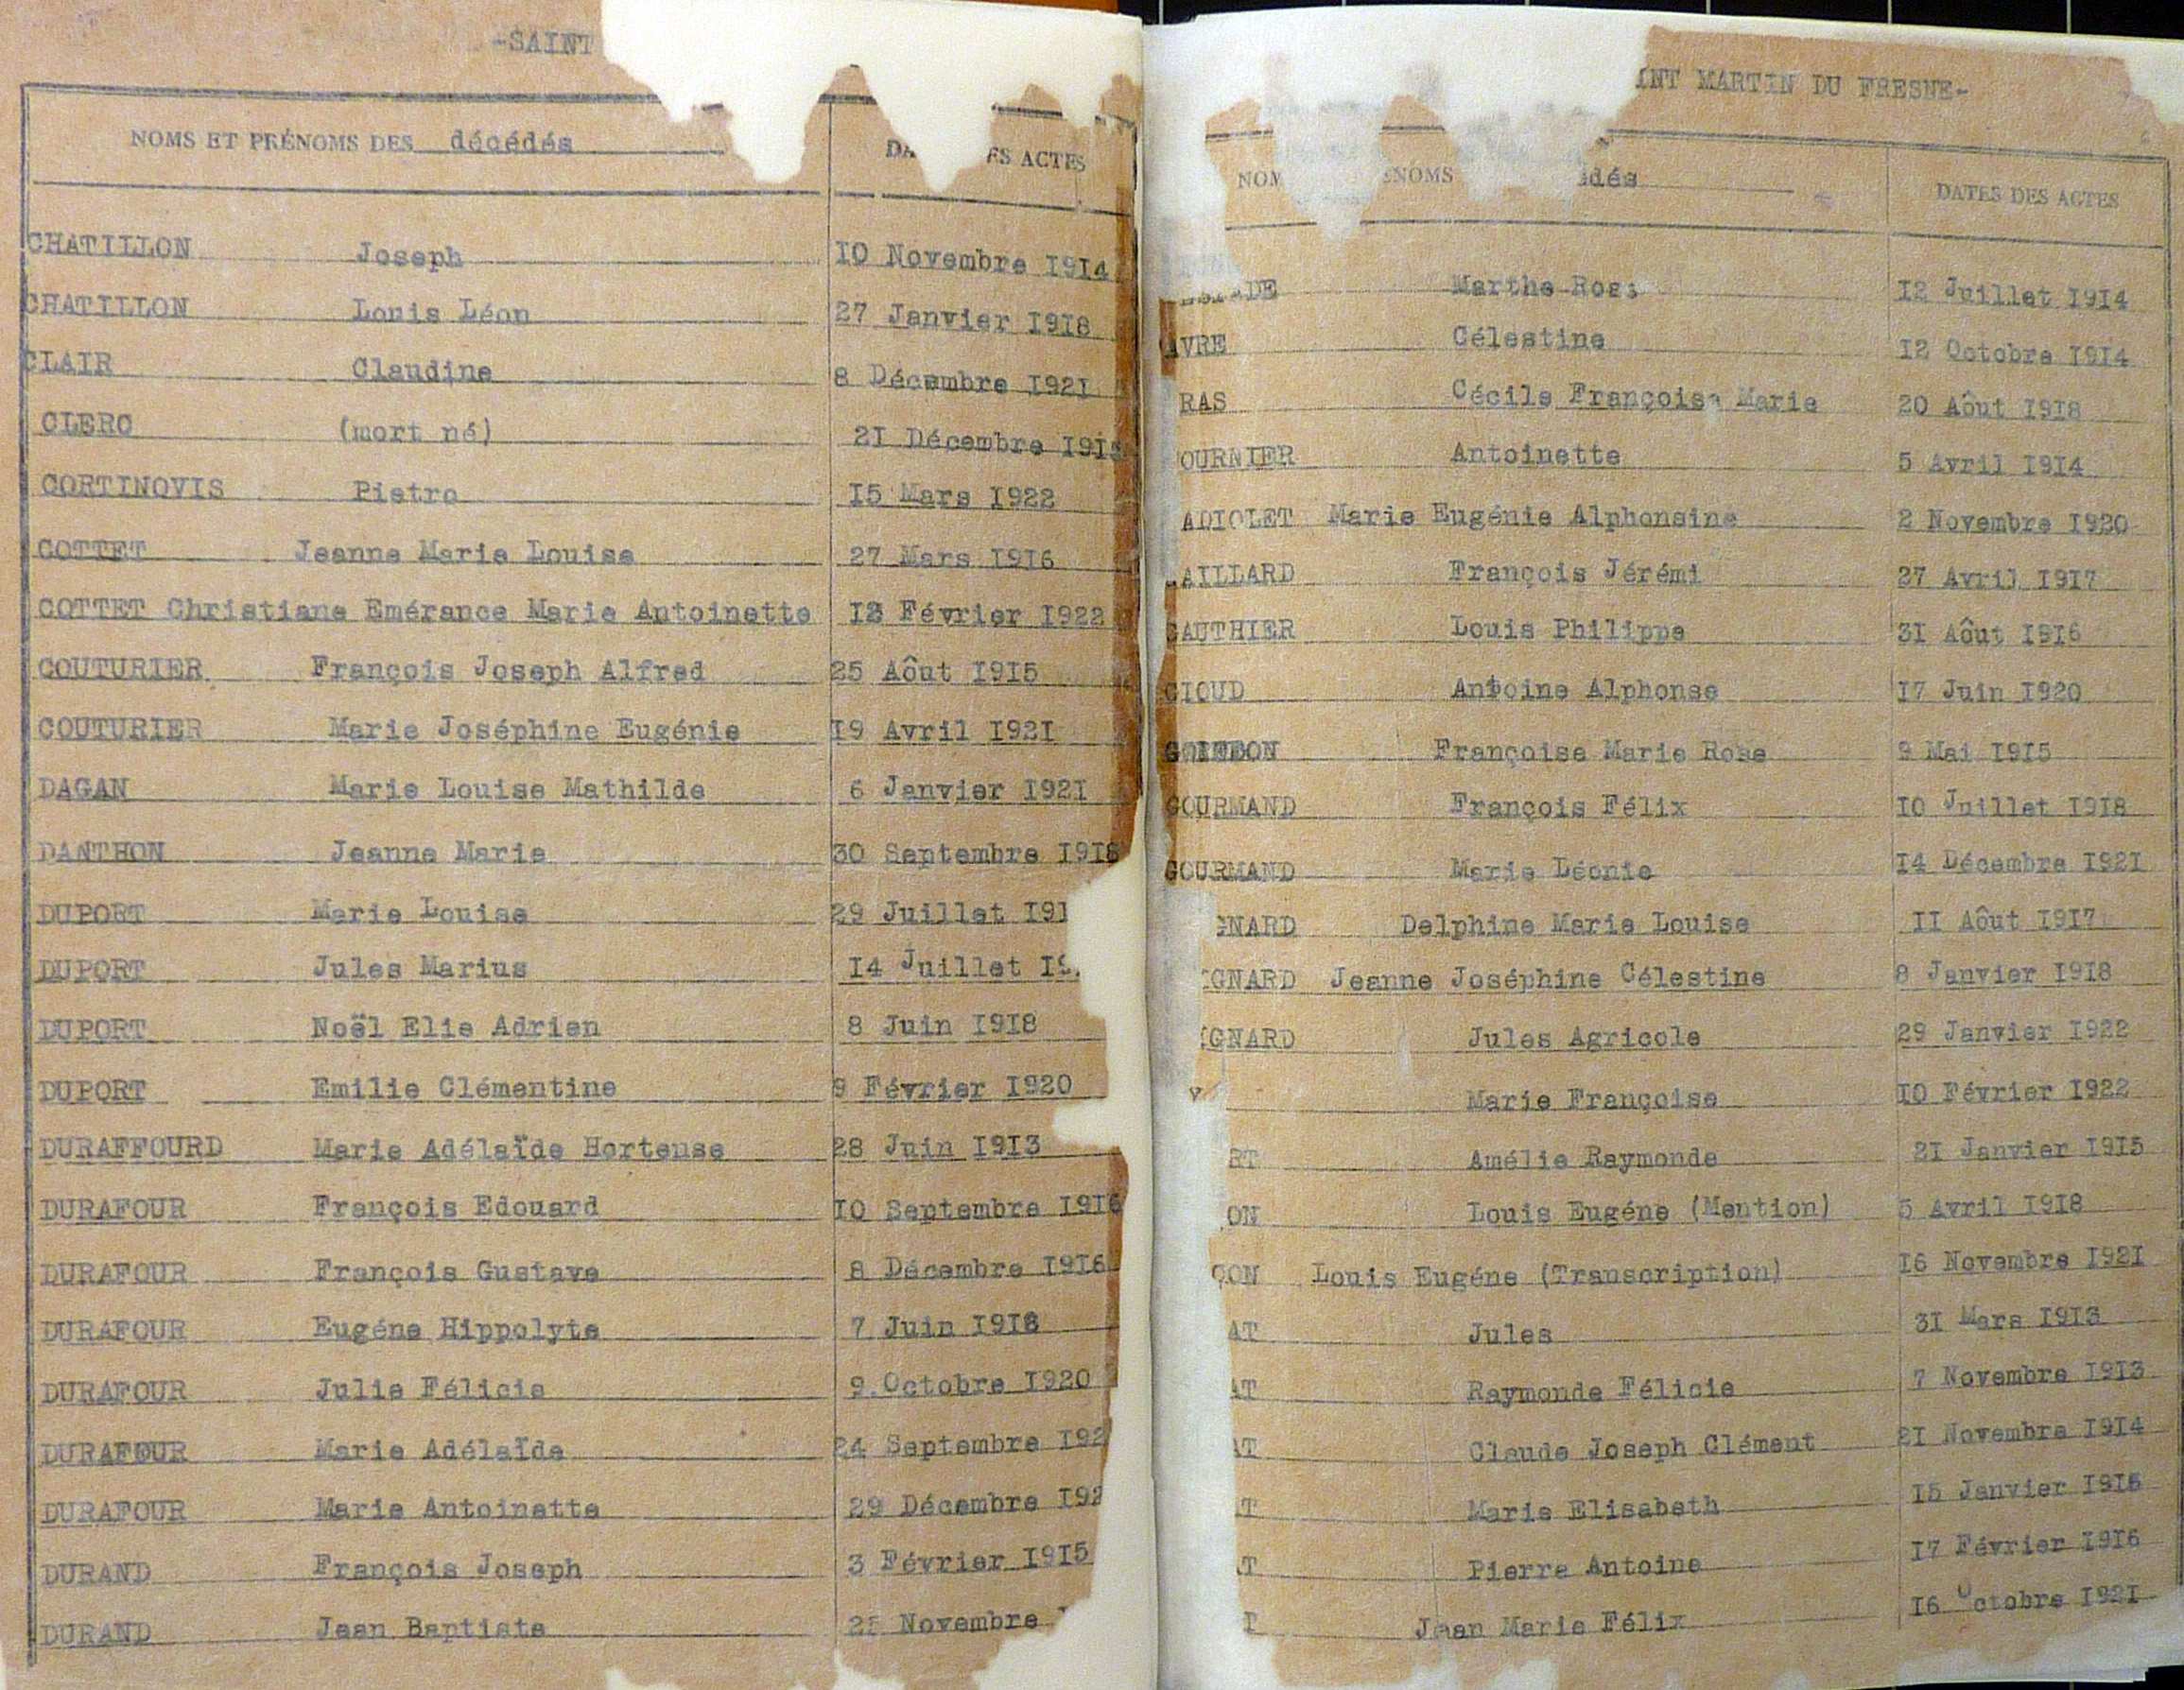 -SAINT
NOMS ET PRÉNOMS DES décédés ACTES
CHATILLON Joseph 10 Novembre 1914
CHATILLON Louis Léon 27 Janvier 1918
CLAIR Claudine 8 Décembre 1921
CLERC (mort né) 21 Décembre
CORTINOVIS Pietro 15 Mars 1922
COTTET Jeanne Marie Louise 27 Mars 1916
COTTET Christiane Emérance Marie Antoinette Février 1922
COUTURIER François Joseph Alfred 25 Aôut 1915
COUTURIER Marie Joséphine Eugénie 19 Avril 1921
DAGAN Marie Louise Mathilde 6 Janvier 1921
DANTHON Jeanne Marie 30 Septembre 1918
DUPORT Marie Louise 29 Juillet
DUPORT Jules Marius 14 Juillet
DUPORT Noël Elie Adrien 8 Juin 1918
DUPORT Emilie Clémentine 9 Février 1920
DURAFFOURD Marie Adélaïde Horteuse 28 Juin 1913
DURAFOUR François Edouard 10 Septembre 1916
DURAFOUR François Gustave 8 Décembre 1916
DURAFOUR Eugéne Hippolyte 7 Juin 1918
DURAFOUR Julie Félicie 9 Octobre 1920
DURAFOUR Marie Adélaïde 24 Septembre 192
DURAFOUR Marie Antoinette 29 Décembre 192
DURAND François Joseph 3 Février 1915
DURAND Jean Baptiste Novembre
INT MARTIN DU FRESNE-
NOM ÉNOMS édés DATES DES ACTES
DE Marthe Rose 12 Juillet 1914
VRE Célestine 12 Octobre 1914
RAS Cécile Françoise Marie 20 Aôut 1918
OURNIER Antoinette 5 Avril 1914
ADIOLET Marie Eugénie Alphonsine 2 Novembre 1920
AILLARD François Jérémi 27 Avril 1917
GAUTHIER Louis Philippe 31 Aôut 1916
GIOUD Antoine Alphonse 17 Juin 1920
Françoise Marie Rose 9 Mai 1915
GOURMAND François Félix 10 Juillet 1918
GOURMAND Marie Léonie 14 Décembre 1921
GNARD Delphine Marie Louise 11 Aôut 1917
IGNARD Jeanne Joséphine Célestine 8 Janvier 1918
IGNARD Jules Agricole 29 Janvier 1922
Marie Françoise 10 Février 1922
RT Amélie Raymonde 21 Janvier 1915
ON Louis Eugéne (Mention) 5 Avril 1918
ÇON Louis Eugéne (Transcription) 16 Novembre 1921
AT Jules 31 Mars 1913
AT Raymonde Félicie 7 Novembre 1913
AT Claude Joseph Clément 21 Novembre 1914
T Marie Elisabeth 15 Janvier
T Pierre Antoine 17 Février 1916
T Jean Marie Félix 16 Octobre 1921